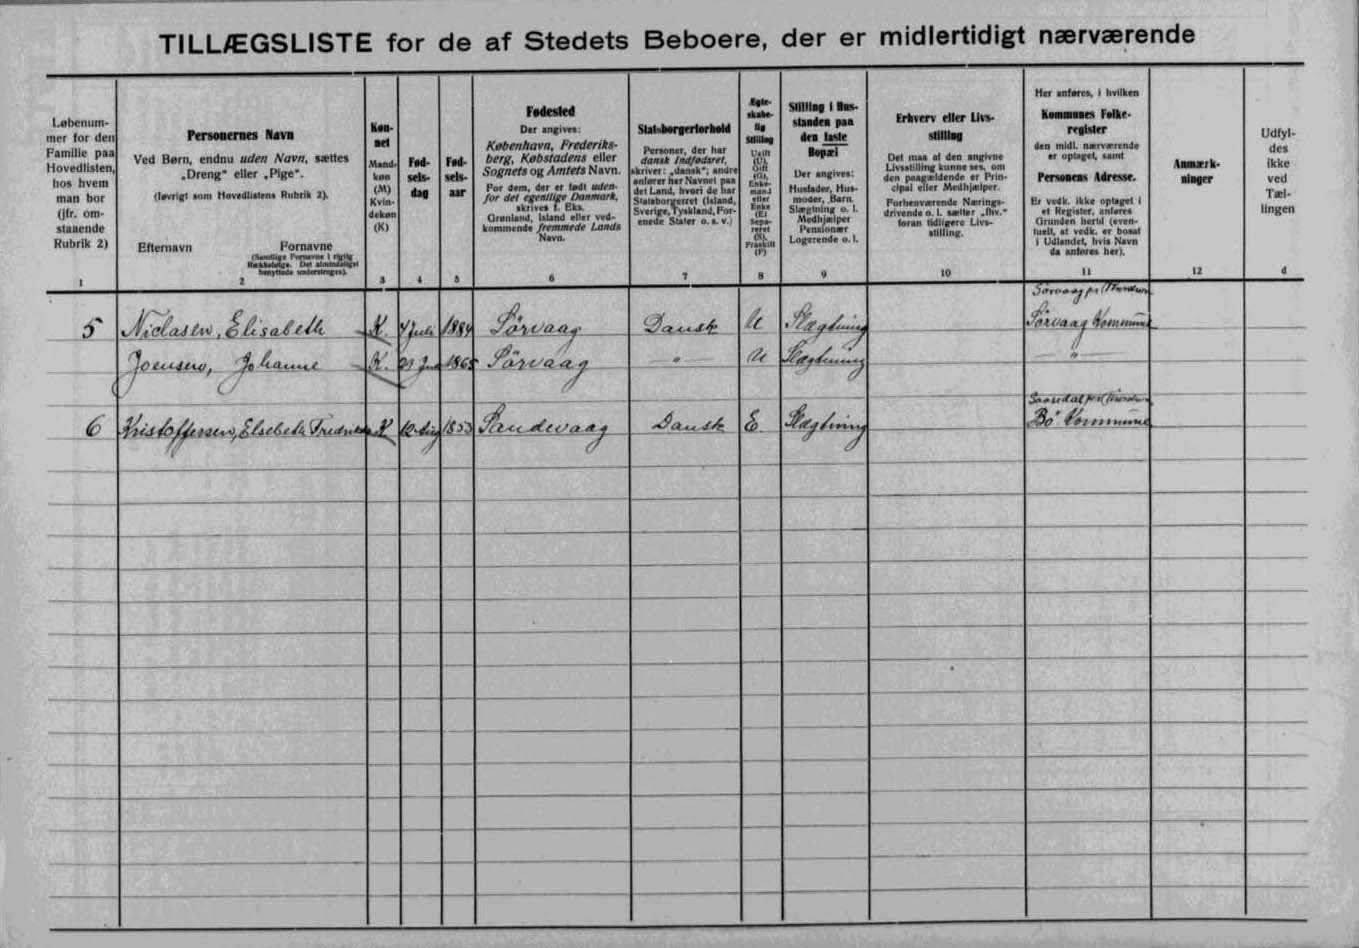 TILLÆGSLISTE for de af Stedets Beboere, der er midlertidigt nærværende
Løbenum-
mer for den
Familie paa
Hovedlisten,
hos hvem
man bor
(jfr. om-
staaende
Rubrik 2)
1
Personernes Navn
Ved Børn, endnu uden Navn, sættes
„Dreng" eller „Pige".
(Iøvrigt som Hovedlistens Rubrik 2).
Efternavn
Fornavne
(Samtlige Fornavne i rigtig
Rækkefølge. Det almindeligst
benyttede understreges).
2
Køn-
net
Mand-
køn
(M)
Kvin-
dekøn
(K)
3
Fød-
sels-
dag
4
Fød-
sels-
aar
5
Fødested
Der angives:
København, Frederiks-
berg, Købstadens eller
Sognets og Amtets Navn.
For dem, der er født uden-
for det egentlige Danmark,
skrives f. Eks.
Grønland, Island eller ved-
kommende fremmede Lands
Navn.
6
Statsborgerforhold
Personer, der har
dansk Indfødsret,
skriver: „dansk"; andre
anfører her Navnet paa
det Land, hvori de har
Statsborgerret (Island,
Sverige, Tyskland, For-
enede Stater o. s. v.)
7
Ægte-
skabe-
lig
Stilling
Ugift
(U),
Gift
(G),
Enke-
mand
eller
Enke
(E)
Sepa-
reret
(S),
Fraskilt
(F)
8
Stilling i Hus-
standen paa
den faste
Bopæl
Der angives:
Husfader, Hus-
moder, Barn.
Slægtning o. l.
Medhjælper
Pensionær
Logerende o. l.
9
Erhverv eller Livs-
stilling
Det maa af den angivne
Livsstilling kunne ses, om
den paagældende er Prin-
cipal eller Medhjælper.
Forhenværende Nærings-
drivende o. l. sætter „fhv."
foran tidligere Livs-
stilling.
10
Her anføres, i hvilken
Kommunes Folke-
register
den midl. nærværende
er optaget, samt
Personens Adresse.
Er vedk. ikke optaget i
et Register, anføres
Grunden hertil (even-
tuelt, at vedk. er bosat
i Udlandet, hvis Navn
da anføres her).
11
Anmærk-
ninger
12
Udfyl-
des
ikke
ved
Tæl-
lingen
d
Sörvaag pr
5 Niclasen, Elisabeth K. 4 Juli 1884 Sörvaag Dansk U Slægtning Sörvaag Kommune
Joensen, Johanne K. 1865 Sörvaag — " — U Slægtning — " —
6 Kristoffersen, Elsebeth K 12 Aug 1853 Sandevaag Dansk E. Slægtning Bö Kommune